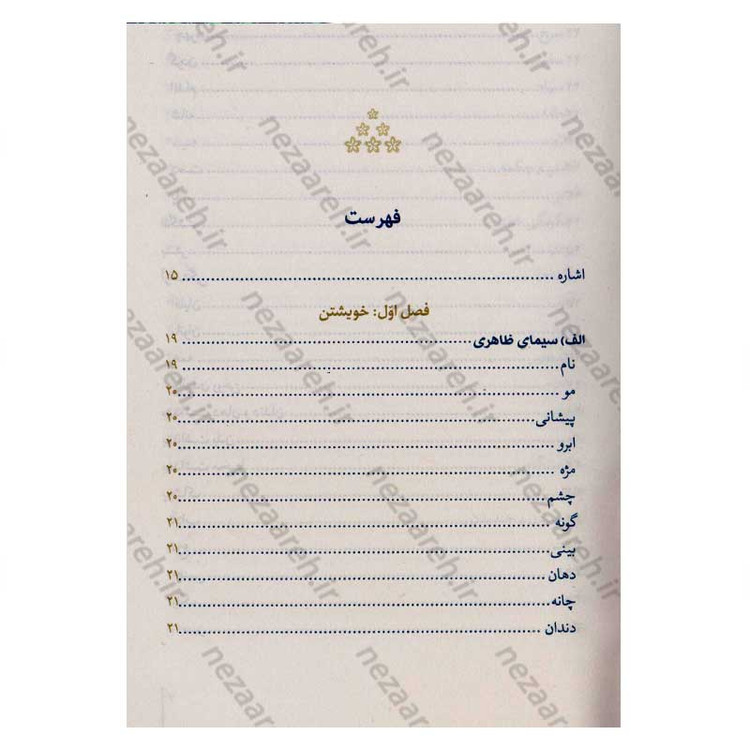 فهرست
اشاره ........ ۱۵
فصل اوّل: خویشتن
الف) سیمای ظاهری ........ ۱۹
نام ........ ۱۹
مو ........ ۲۰
پیشانی ........ ۲۰
ابرو ........ ۲۰
مژه ........ ۲۰
چشم ........ ۲۰
گونه ........ ۲۱
بینی ........ ۲۱
دهان ........ ۲۱
چانه ........ ۲۱
دندان ........ ۲۱
nezaareh.ir